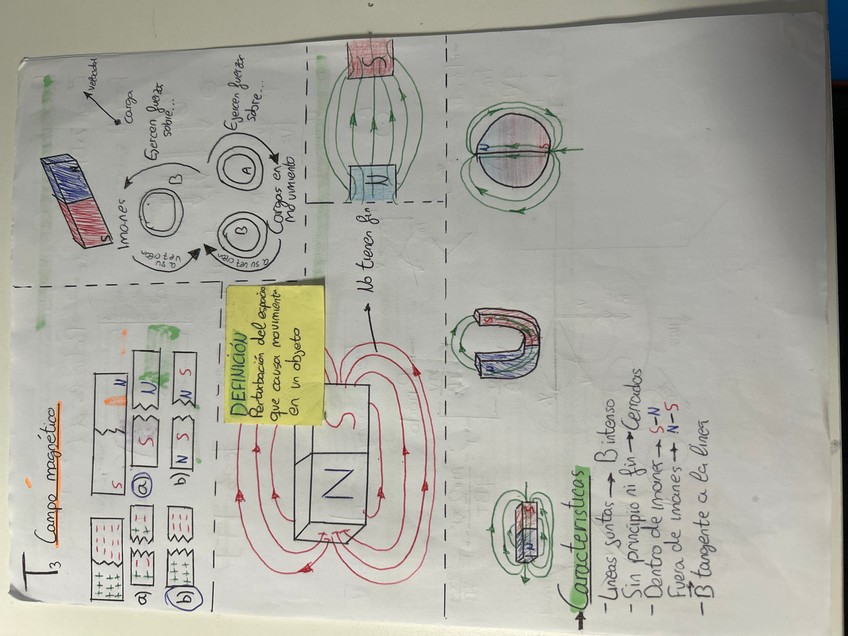 T3 Campo magnético
+++ ---
S N
a)
++ --
a)
S N
b)
++ --
b)
N S N S
S N
Imanes
carga
velocidad
Ejercen fuerza
sobre...
B
a su
vez crean
Ejercen fuerza
sobre...
B
A
a su vez crean
Cargas en
movimiento
DEFINICIÓN
Perturbación del espacio
que causa movimiento
en un objeto
N S
No tienen fin
N S
N S
N S
N S
→ Características
- Líneas juntas → B intenso
- Sin principio ni fin → Cerradas
- Dentro de imanes → S-N
Fuera de imanes → N-S
- B tangente a la línea